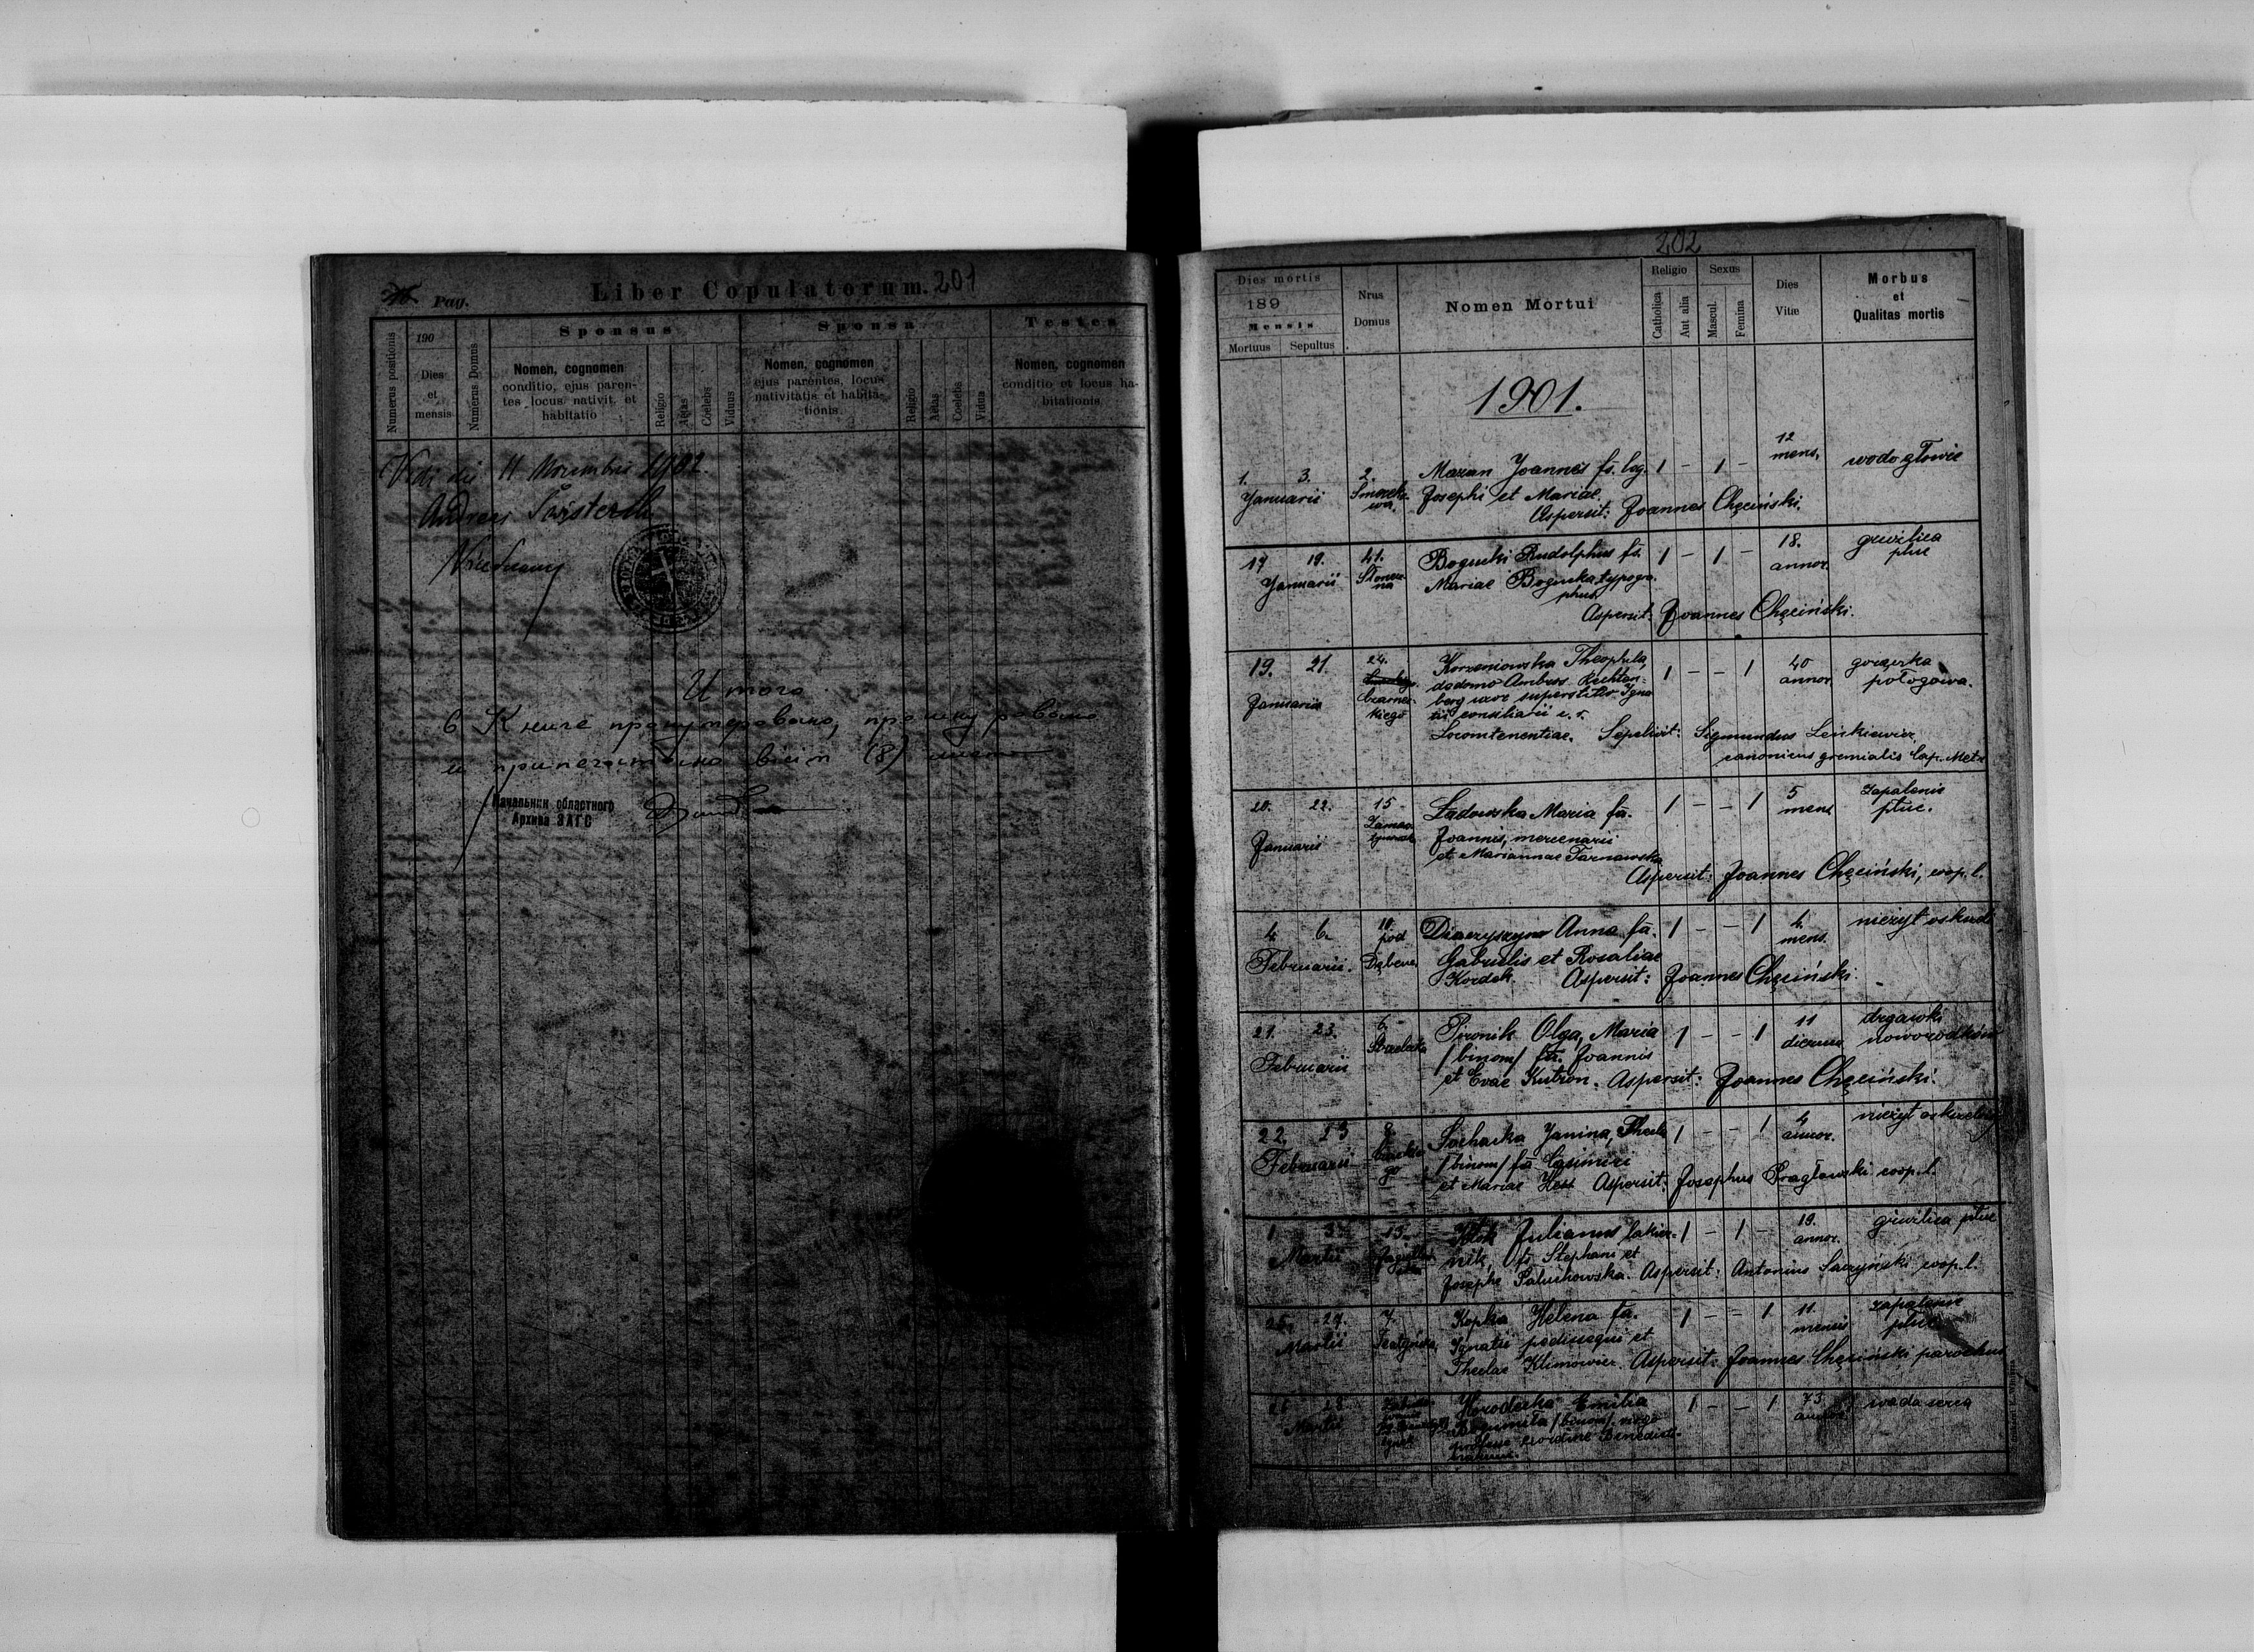 Pag.
Liber Copulatorum. 201
Numerus positionis
190
Dies
et
mensis
Numerus Domus
Sponsus
Nomen, cognomen
conditio, ejus paren-
tes locus nativit. et
habitatio
Religio
Aetas
Coelebs
Viduus
Sponsa
Nomen, cognomen
ejus parentes, locus
nativitatis et habita-
tionis
Religio
Aetas
Coelebs
Vidua
Testes
Nomen, cognomen
conditio et locus ha-
bitationis
Vidi die 11 Novembris 1902.
Andreas
Итого
в книге пронумеровано, прошнуровано
и припечатано (8)
Начальник областного
Архива ЗАГС
202
Dies mortis
189
Mensis
Mortuus
Sepultus
Nrus
Domus
Nomen Mortui
Religio
Catholica
Aut alia
Sexus
Mascul.
Femina
Dies
Vitæ
Morbus
et
Qualitas mortis
1901.
1. 3. 2. Mazan Joannes fs. leg. 1 - 1 - 12 mens. wodogłowie
Januarii Josephi et Mariae.
Aspersit: Joannes Chęciński.
17 19. 41. Bogucki Rudolphus fs. 1 - 1 - 18. annor. gruźlica płuc
Januarii Mariae Bogucka typogra-
phus
Aspersit: Joannes Chęciński.
19. 21. 24. Korzeniowska Theophila, 1 - - 1 40 annor. gorączka połogowa.
Januarii Czarnec-
kiego
de domo Ambros Rechten-
berg uxor superstitis Igna
tii consiliarii c. r.
Locumtenentiae. Sepelivit: Sigmundus Lenkiewicz
canonicus gremialis Cap. Metr.
20. 22. 15 Ładowska Maria fa. 1 - - 1 5 mens zapalenie płuc.
Januarii Joannis, mercenarii
et Mariannae Tarnawska
Aspersit: Joannes Chęciński, coop. l.
4 6. 10. pod Dębem Diaczyszyn Anna fa. 1 - - 1 4. mens. nieżyt oskrzeli
Februarii. Gabrielis et Rosaliae
Kordek. Aspersit: Joannes Chęciński.
21. 23. 6. Strzelecka Pironik Olga, Maria 1 - - 1 11 dierum drgawki noworodków
Februarii /binom/ fa. Joannis
et Evae Kutron. Aspersit: Joannes Chęciński.
22. 23 8. Sochacka Janina, Thecla 1 - - 1 4 annor. nieżyt oskrzeli
Februarii /binom/ fa Casimiri
et Mariae Hess Aspersit: Josephus Pragłowski coop. l.
1 3 13. Julianus lakier- 1 - 1 - 19. annor. gruźlica płuc
Martii nik, fs Stephani et
Josephe Paluchowska. Aspersit: Antonius coop. l.
25. 27. 7. Kopka Helena fa. 1 - - 1 11. mensis zapalenie płuc
Martii Ignatii pedissequi et
Theclae Klimowicz. Aspersit: Joannes Chęciński parochus
26 28 Horodecka Emilia 1 - - 1 73. annor wada serca
Martii /binom/ virgo
professa